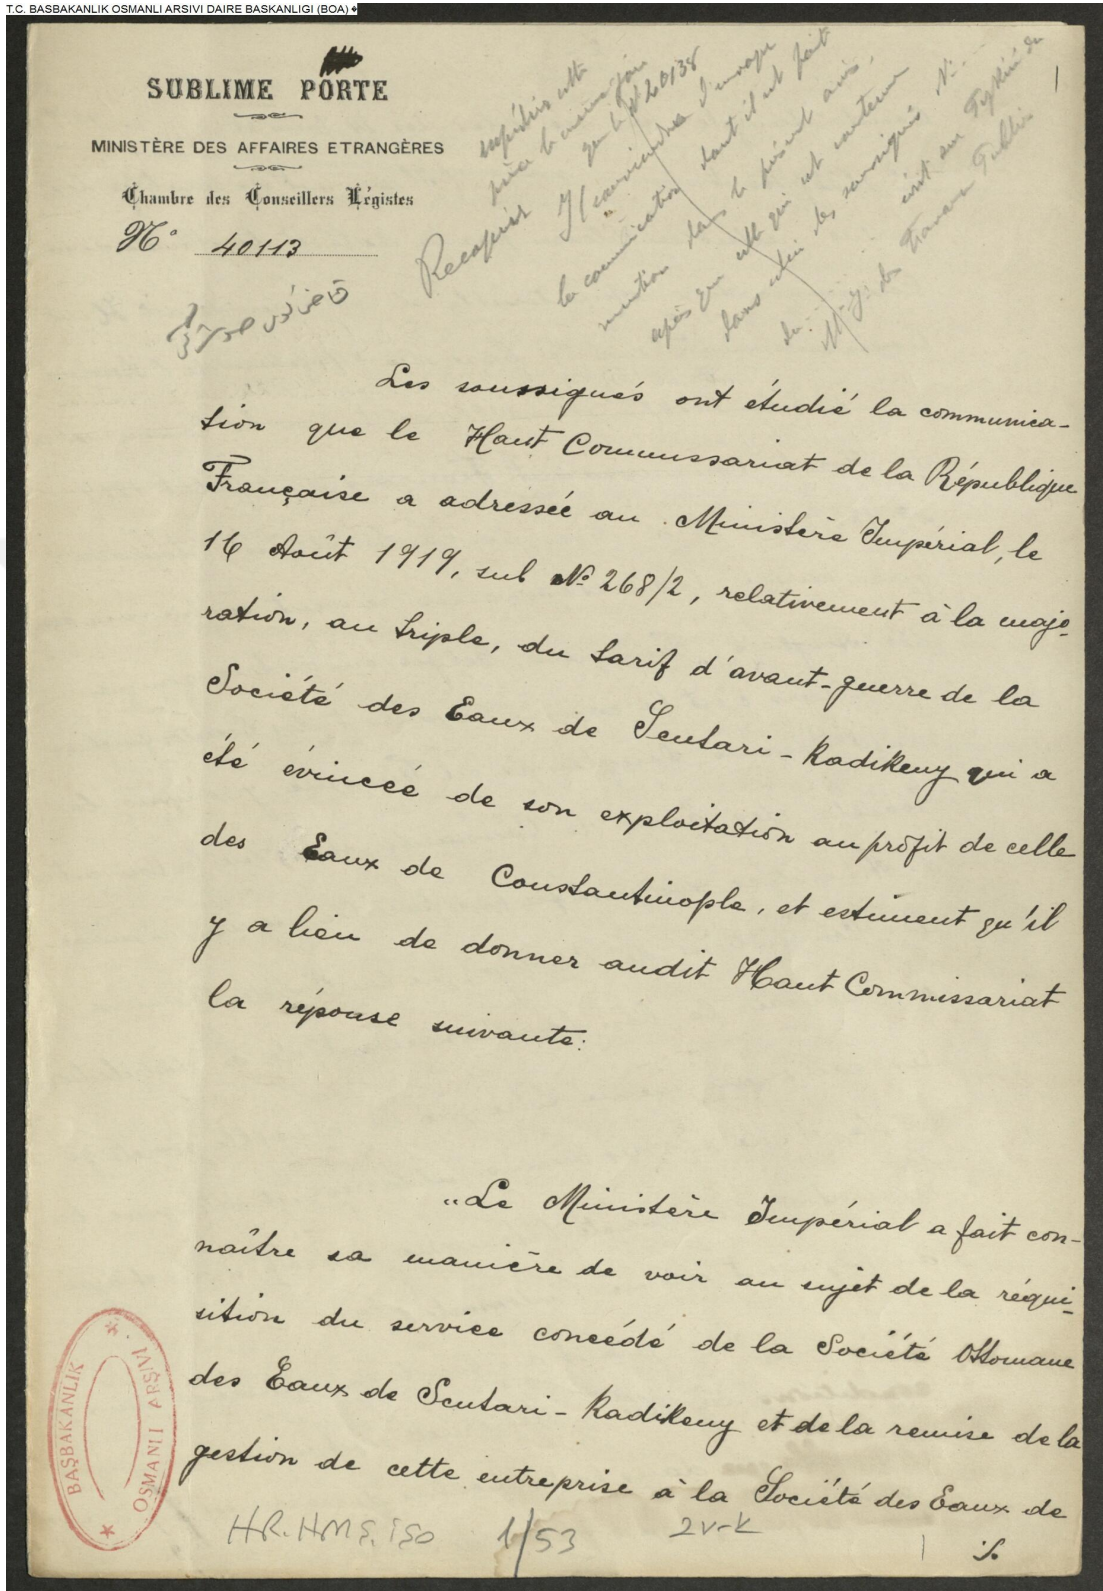 T.C. BASBAKANLIK OSMANLI ARSIVI DAIRE BASKANLIGI (BOA)
SUBLIME PORTE
MINISTÈRE DES AFFAIRES ETRANGÈRES
Chambre des Conseillers Légistes
N° 40113
1
Recopier
N° 20138
Il conviendra d'envoyer
la communication dont il est fait
mention dans le présent avis,
après que celle qui est contenue
dans celui des soussignés N°
du
M. des Travaux Publics
Les soussignés ont étudié la communica-
tion que le Haut Commissariat de la République
Française a adressée au Ministère Impérial, le
16 Août 1919, sub N° 268/2, relativement à la majo-
ration, au triple, du tarif d'avant-guerre de la
Société des Eaux de Scutari-Kadikeuy qui a
été évincée de son exploitation au profit de celle
des Eaux de Constantinople, et estiment qu'il
y a lieu de donner audit Haut Commissariat
la réponse suivante:
"Le Ministère Impérial a fait con-
naître sa manière de voir au sujet de la réqui-
sition du service concédé de la Société Ottomane
des Eaux de Scutari-Kadikeuy et de la remise de la
gestion de cette entreprise à la Société des Eaux de
./.
BAŞBAKANLIK
OSMANLI ARŞIVI
HR.HMŞ.İŞO 1/53 2V-K